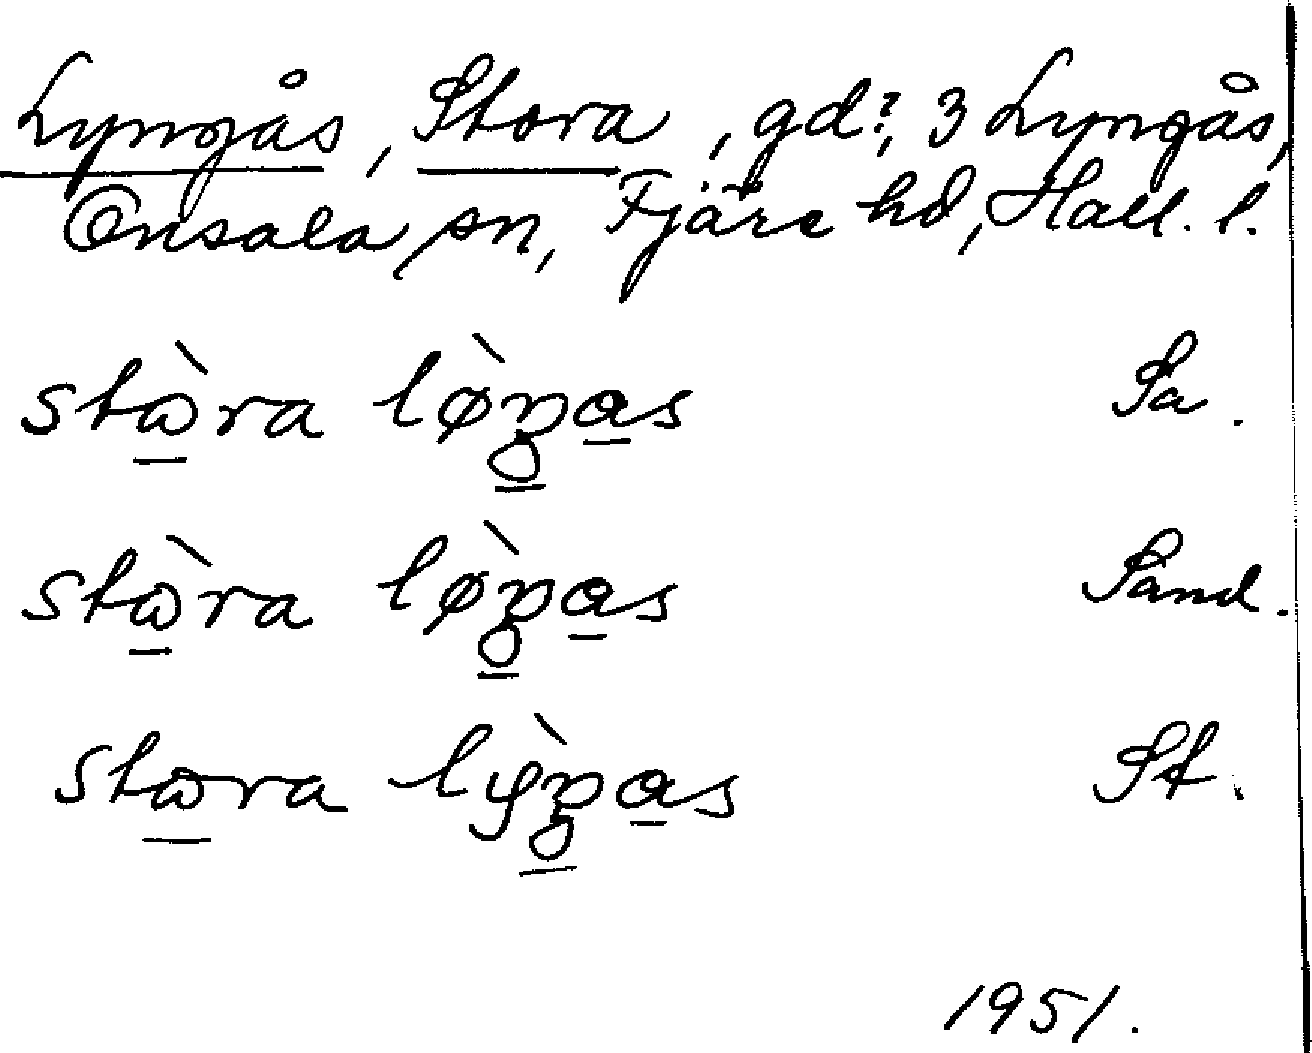 Lyngås, Stora, gd?, 3 Lyngås,
Onsala sn, Fjäre hd, Hall. l.
stὼra lø̀ŋas Sa.
stὼra lø̀ŋas Sand.
stωra lỳŋas St.
1951.